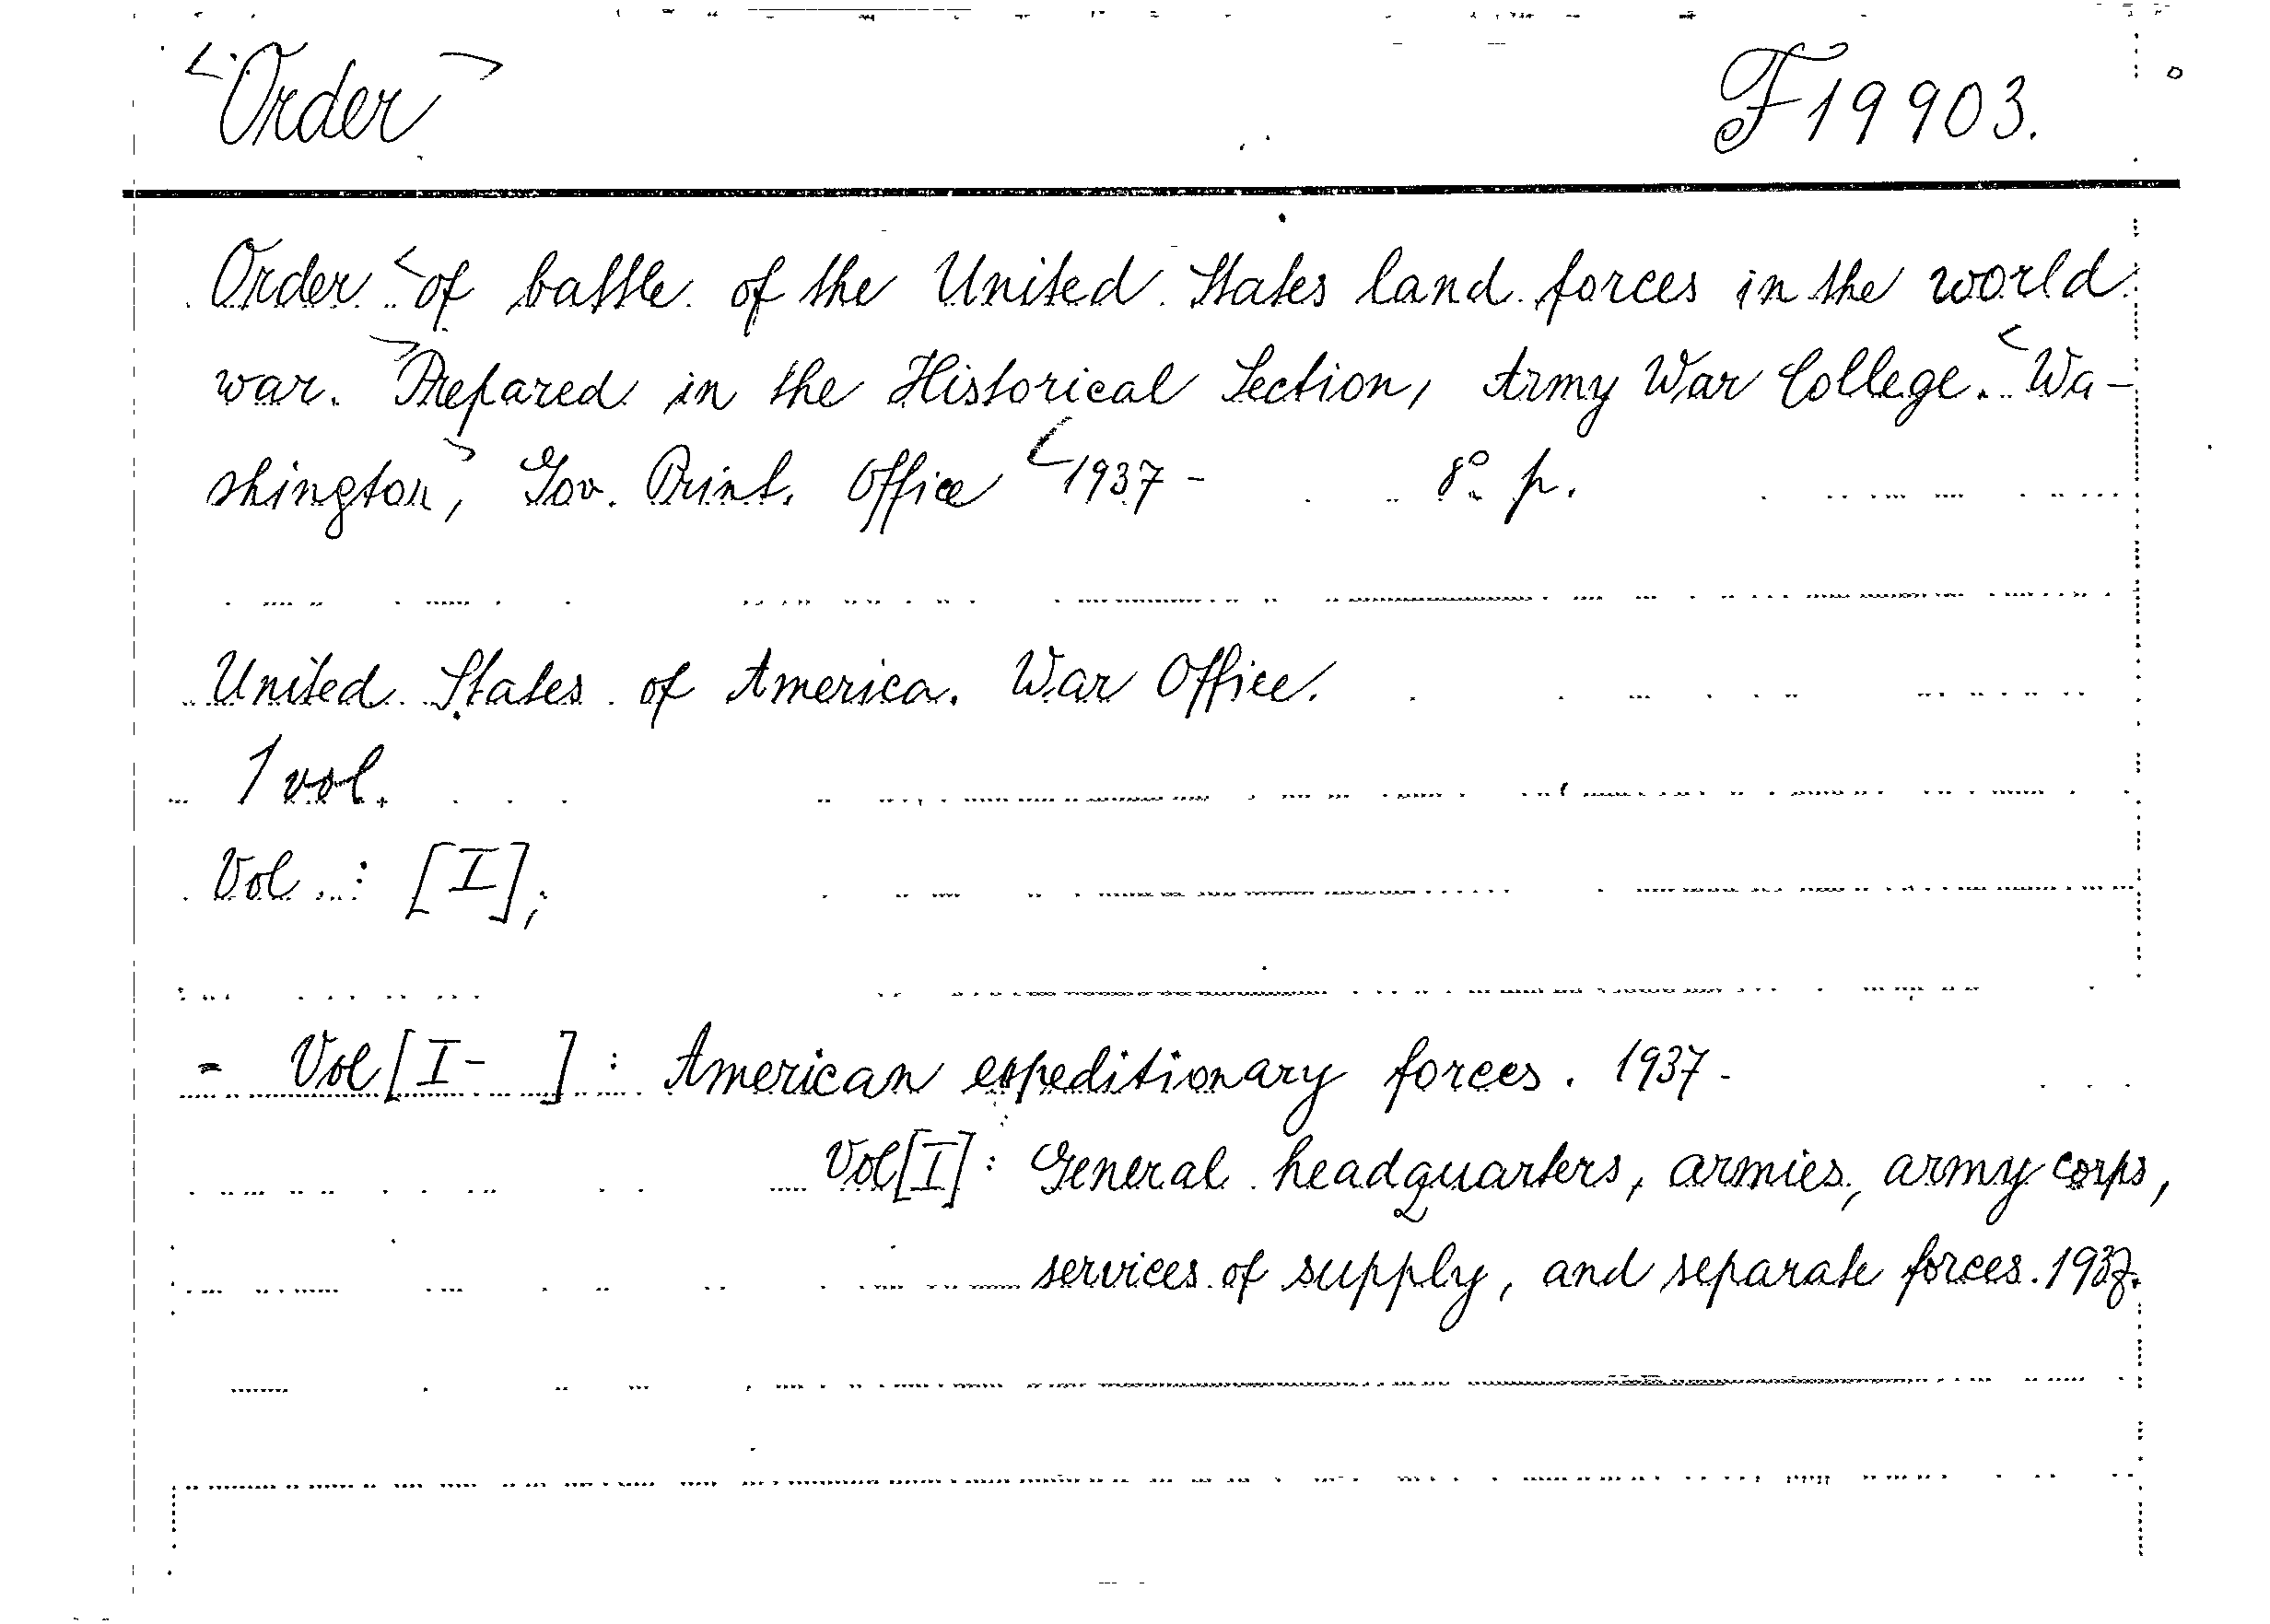 <Order>
F 19903.
Order <of battle of the United States land forces in the world
war.> Prepared in the Historical Section, Army War College. <Wa-
shington>, Gov. Print. Office <1937 - 8° p.
United States of America. War Office.
1 vol.
Vol. : [I];
- Vol [I- ] : American expeditionary forces. 1937 -
Vol [I] : General headquarters, armies, army corps,
services of supply, and separate forces. 1937.